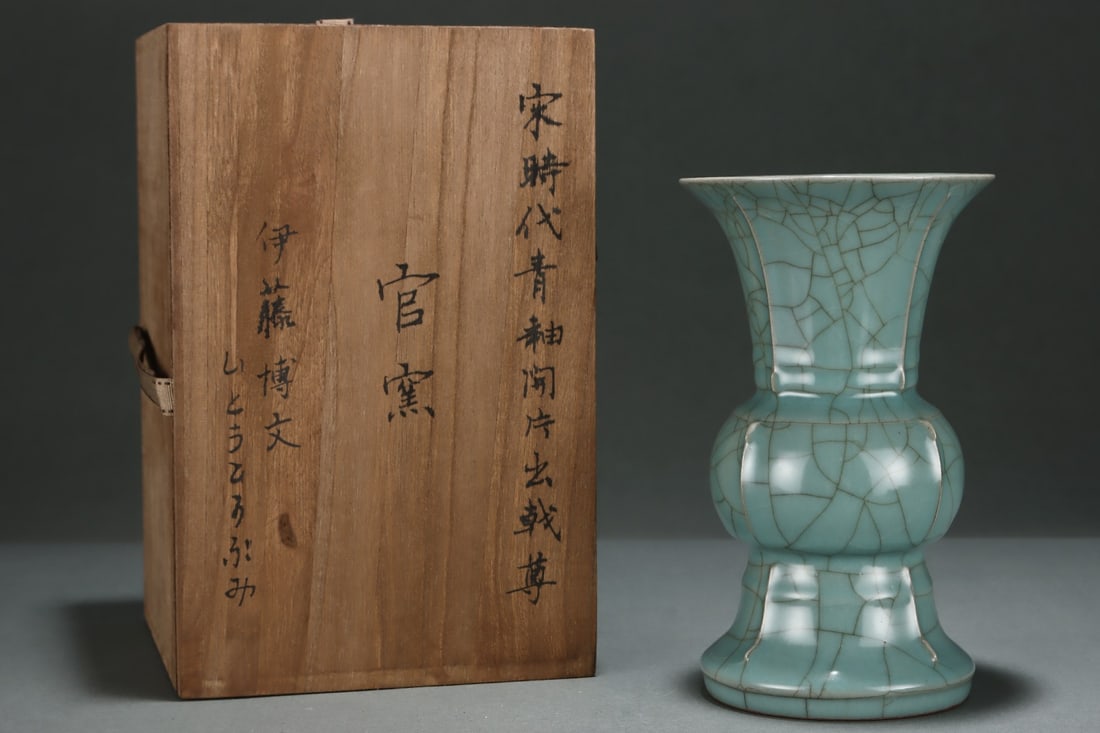 宋時代青軸開片出戟尊
官窯
伊藤博文
いとうひろぶみ